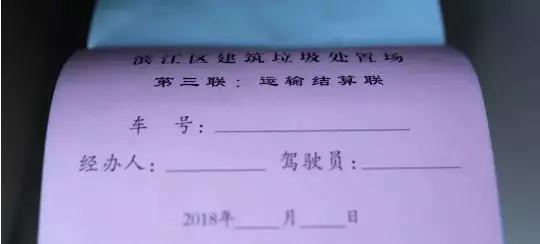 滨江区建筑垃圾处置场
第三联：运输结算联
车 号：__________
经办人：__________ 驾驶员：__________
2018年____月____日